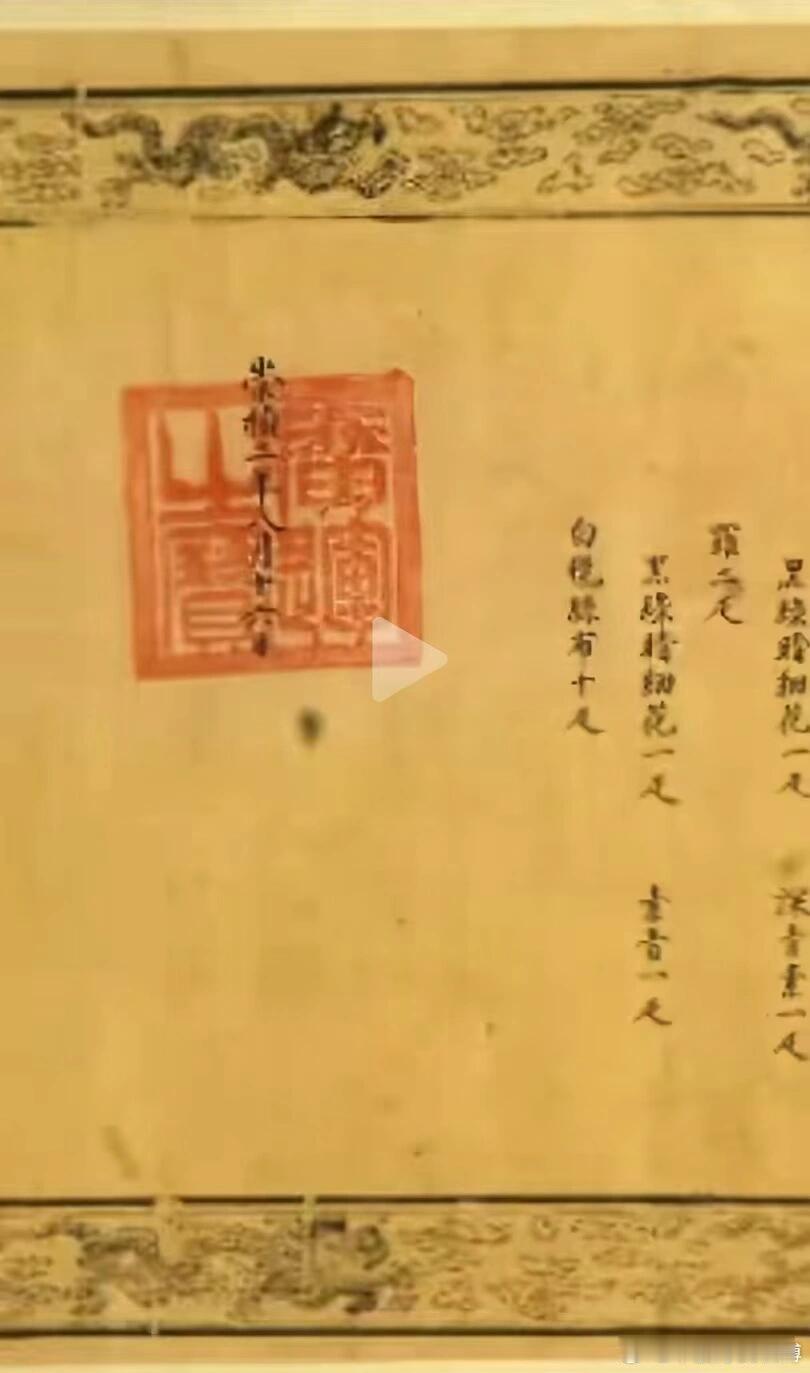 黑綠暗細花一疋　深青素一疋
羅二疋
黑綠暗細花一疋　素青一疋
白氁絲布十疋
崇禎二年八月十六日
廣運之寶